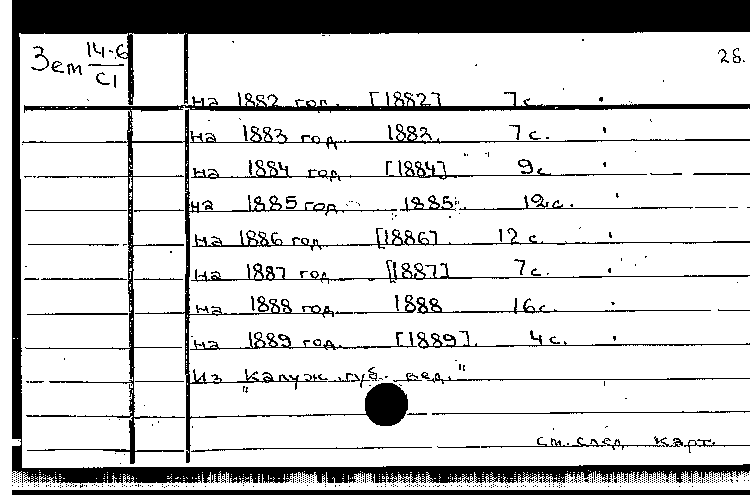 Зем 14-6
С1
26.
на 1882 год. [1882] 7с.
на 1883 год 1882. 7с.
на 1884 год [1884] 9с
на 1885 год 1885. 12с.
на 1886 год [1886]. 12с.
на 1887 год [1887] 7с.
на 1888 год 1888 16с.
на 1889 год. [1889]. 4с.
Из "Калуж. губ. вед."
См. след. карт.